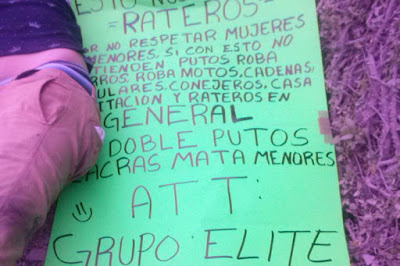 ESTO
=RATEROS=
OR NO RESPETAR MUJERES
MENORES, SI CON ESTO NO
TIENDEN PUTOS ROBA
RROS, ROBA MOTOS, CADENAS,
ULARES, CONEJEROS, CASA
ITACION Y RATEROS EN
GENERAL
DOBLE PUTOS
ACRAS MATA MENORES
ATT:
GRUPO ELITE